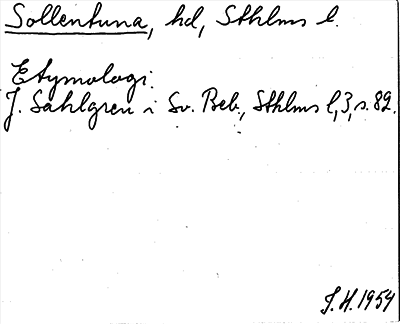 Sollentuna, hd, Sthlms l.
Etymologi.
J. Sahlgren i Sv. Beb., Sthlms l, 3, s. 82.
J. H. 1954